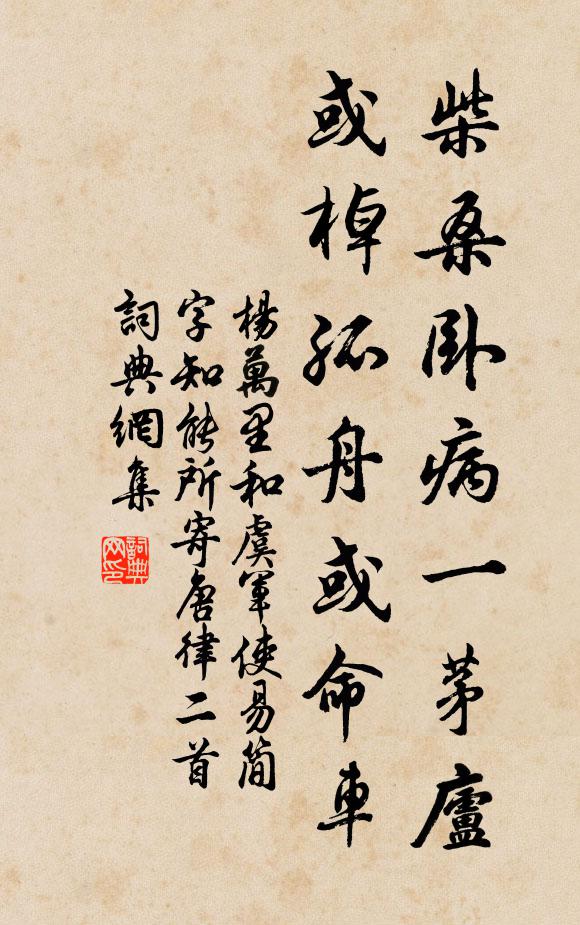 柴桑卧病一茅廬
或棹孤舟或命車
楊萬里和虞軍使易簡
字知能所寄唐律二首
詞典網集
詞典網印